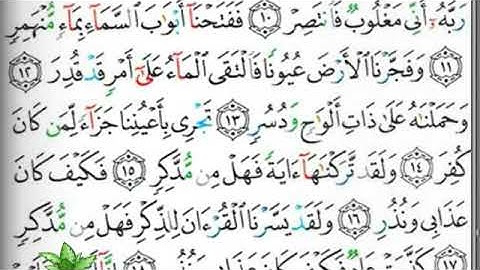 رَبَّهُۥٓ أَنِّي مَغْلُوبٌ فَٱنتَصِرْ ۝١٠ فَفَتَحْنَآ أَبْوَٰبَ ٱلسَّمَآءِ بِمَآءٍ مُّنْهَمِرٍ
۝١١ وَفَجَّرْنَا ٱلْأَرْضَ عُيُونًا فَٱلْتَقَى ٱلْمَآءُ عَلَىٰٓ أَمْرٍ قَدْ قُدِرَ ۝١٢
وَحَمَلْنَٰهُ عَلَىٰ ذَاتِ أَلْوَٰحٍ وَدُسُرٍ ۝١٣ تَجْرِي بِأَعْيُنِنَا جَزَآءً لِّمَن كَانَ
كُفِرَ ۝١٤ وَلَقَد تَّرَكْنَٰهَآ ءَايَةً فَهَلْ مِن مُّدَّكِرٍ ۝١٥ فَكَيْفَ كَانَ
عَذَابِي وَنُذُرِ ۝١٦ وَلَقَدْ يَسَّرْنَا ٱلْقُرْءَانَ لِلذِّكْرِ فَهَلْ مِن مُّدَّكِرٍ
۝١٧ كَذَّبَتْ عَادٌ فَكَيْفَ كَانَ عَذَابِي وَنُذُرِ ۝١٨ إِنَّآ